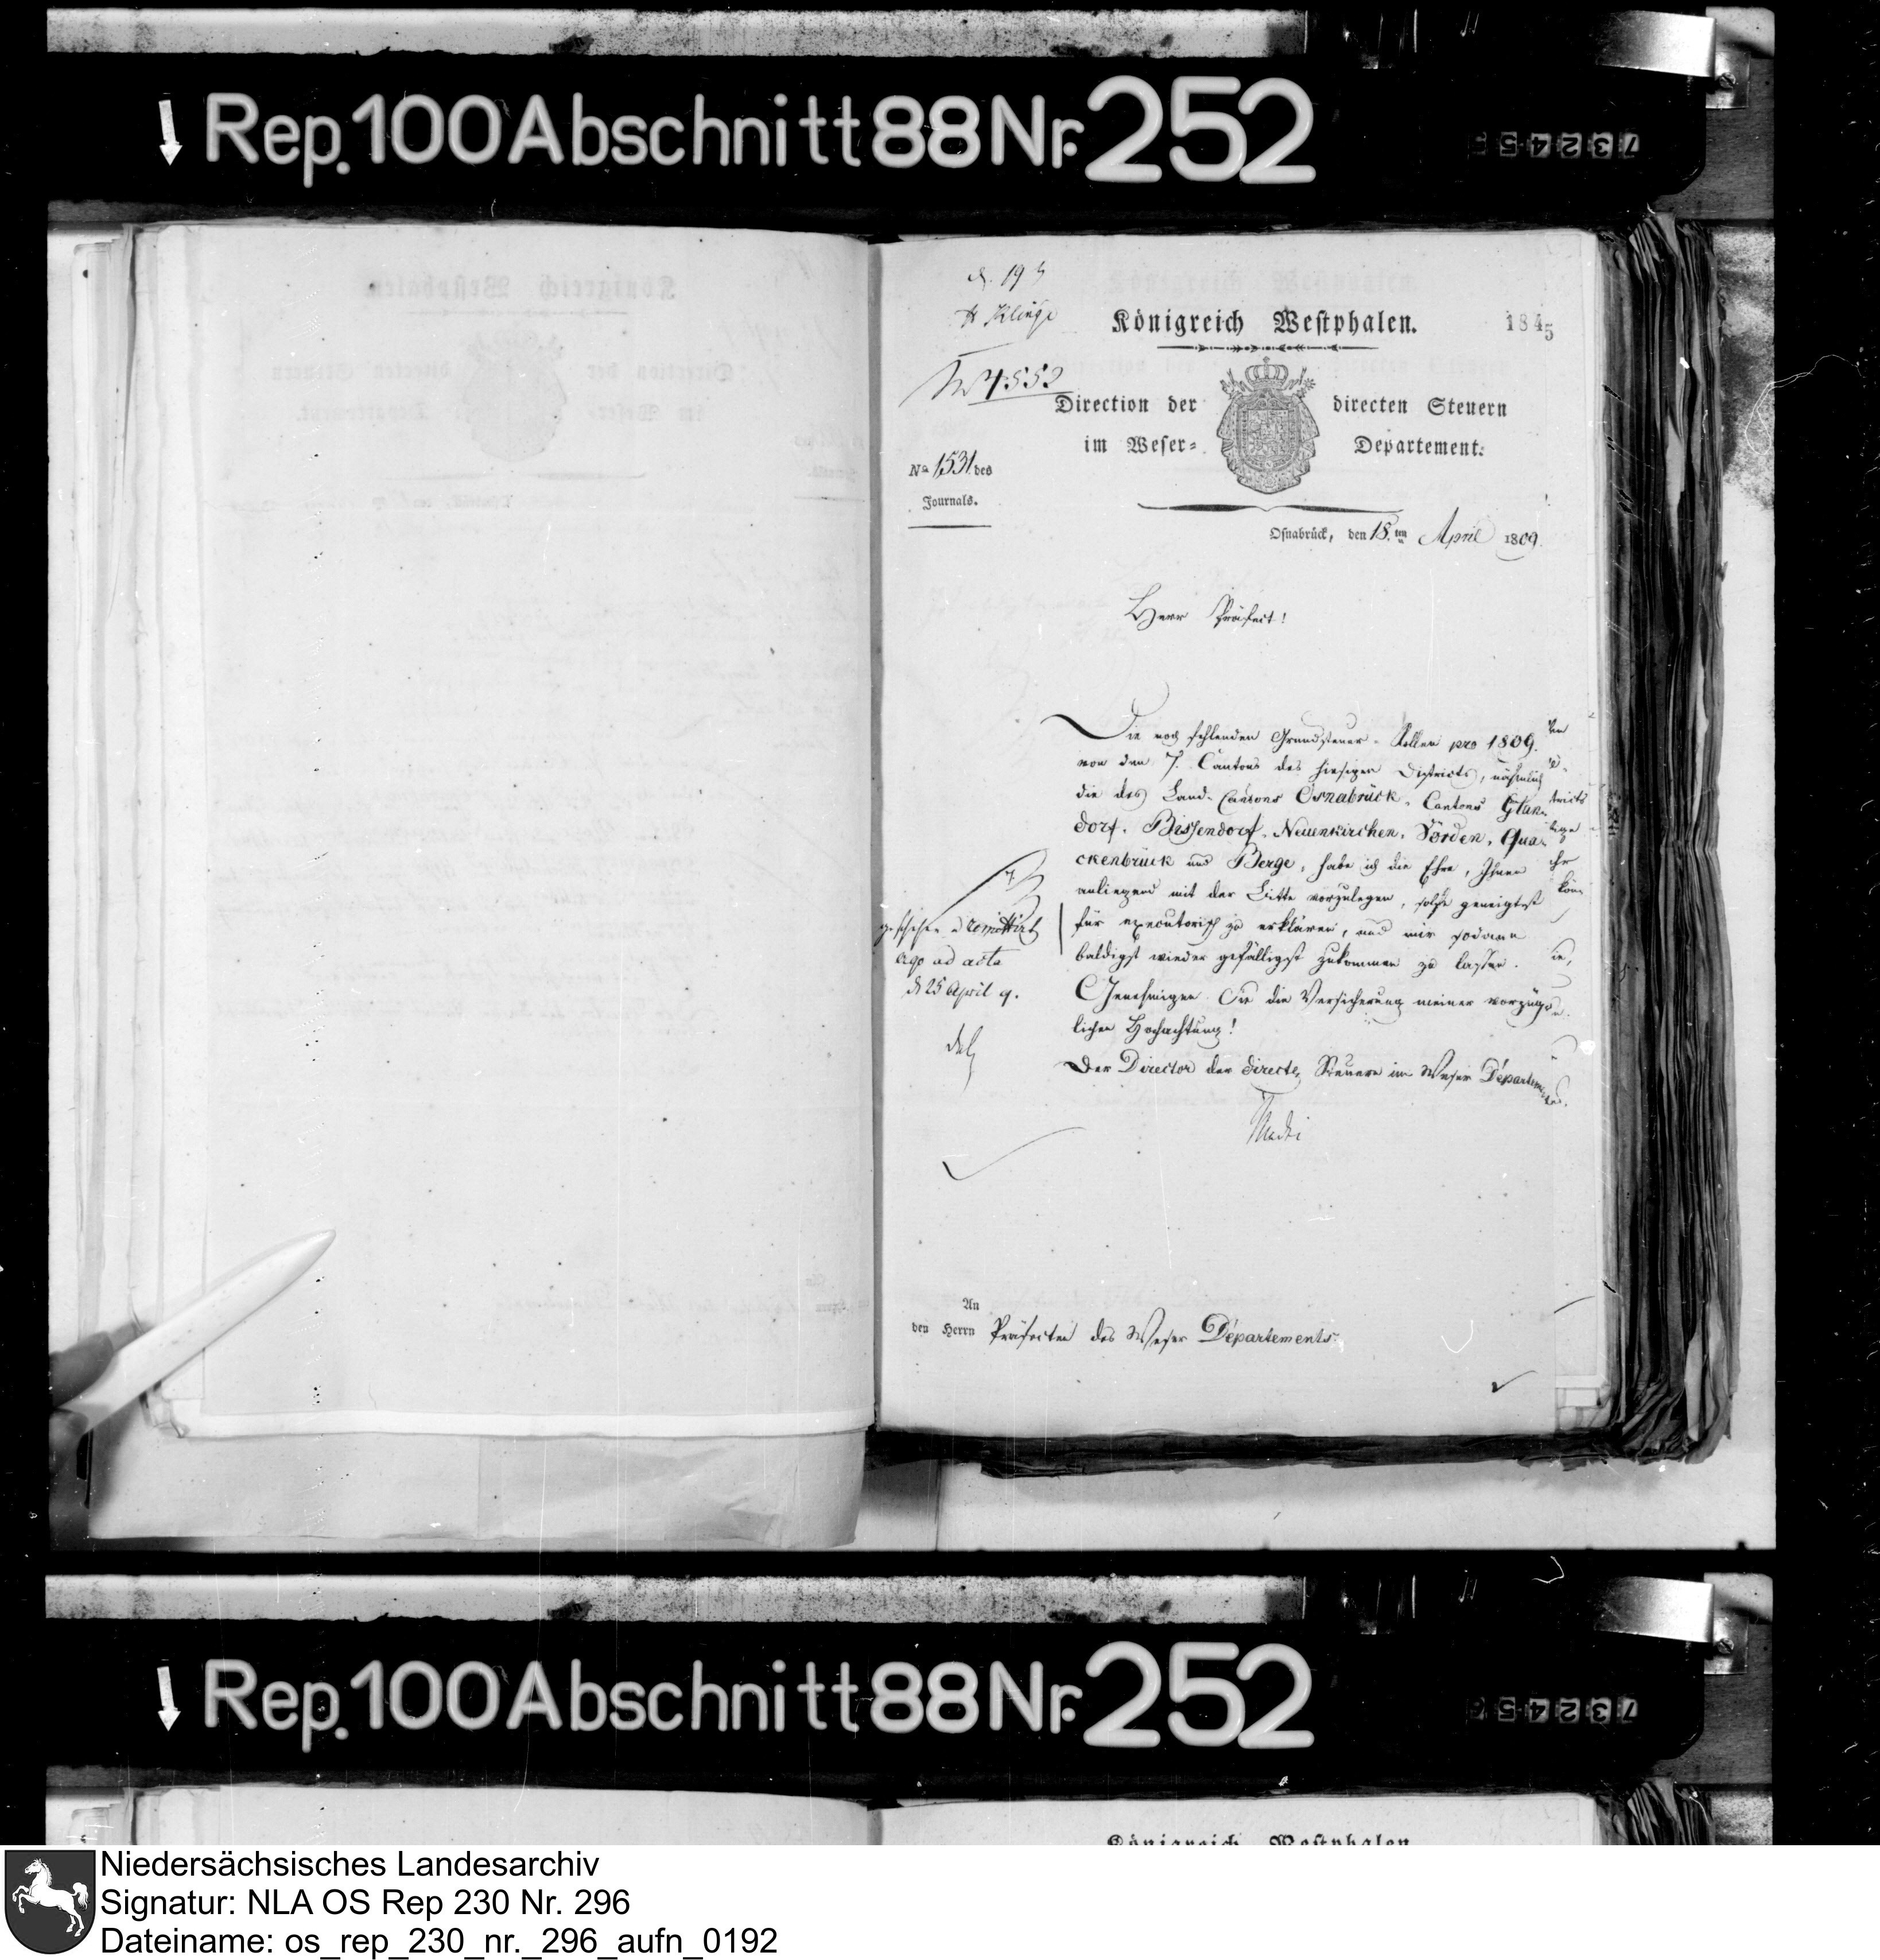 Rep. 100 Abschnitt 88 Nr. 252
732455
d. 19
Klinge
Königreich Westphalen.
1845
N 4552
Direction der directen Steuern
im Weser- Departement.
No 1531 des
Journals.
Osnabrück, den 18. ten April 1809.
Herr Präfect!
Die noch fehlenden Grundsteuer-Rollen pro 1809.
von den 7. Cantons des hiesigen Districts, nähmlich
die des Land-Cantons Osnabrück, Cantons Glan-
dorf, Bissendorf, Neuenkirchen, Vörden, Qua-
ckenbrück und Berge, habe ich die Ehre, Ihnen
anliegend mit der Bitte vorzulegen, solche geneigtest
für executorisch zu erklären, und mir sodann
baldigst wieder gefälligst zukommen zu lassen.
Genehmigen Sie die Versicherung meiner vorzüg-
lichen Hochachtung!
Der Director der directen Steuern im Weser Departement.
geschehen u remittirt
ergo ad acta
d 25 April 9.
An
den Herrn Präfecten des Weser Départements.
Rep. 100 Abschnitt 88 Nr. 252
Königreich Westphalen
Niedersächsisches Landesarchiv
Signatur: NLA OS Rep 230 Nr. 296
Dateiname: os_rep_230_nr._296_aufn_0192